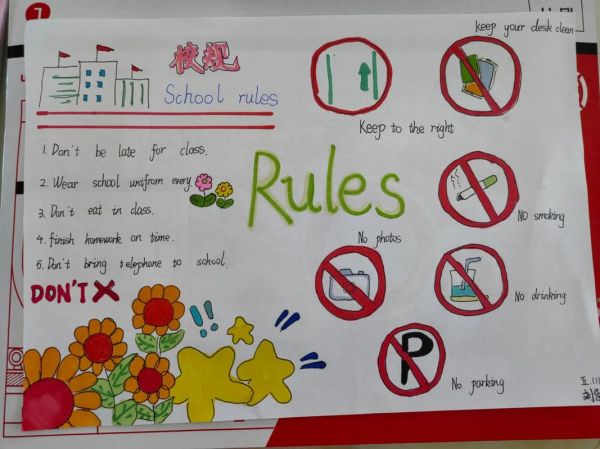 校规
School rules
1. Don't be late for class.
2. Wear school unifrom every.
3. Don't eat in class.
4. finish homework on time.
5. Don't bring telephone to school.
DON'T
Rules
keep your desk clean
Keep to the right
No smoking
No photos
No drinking
P
No parking